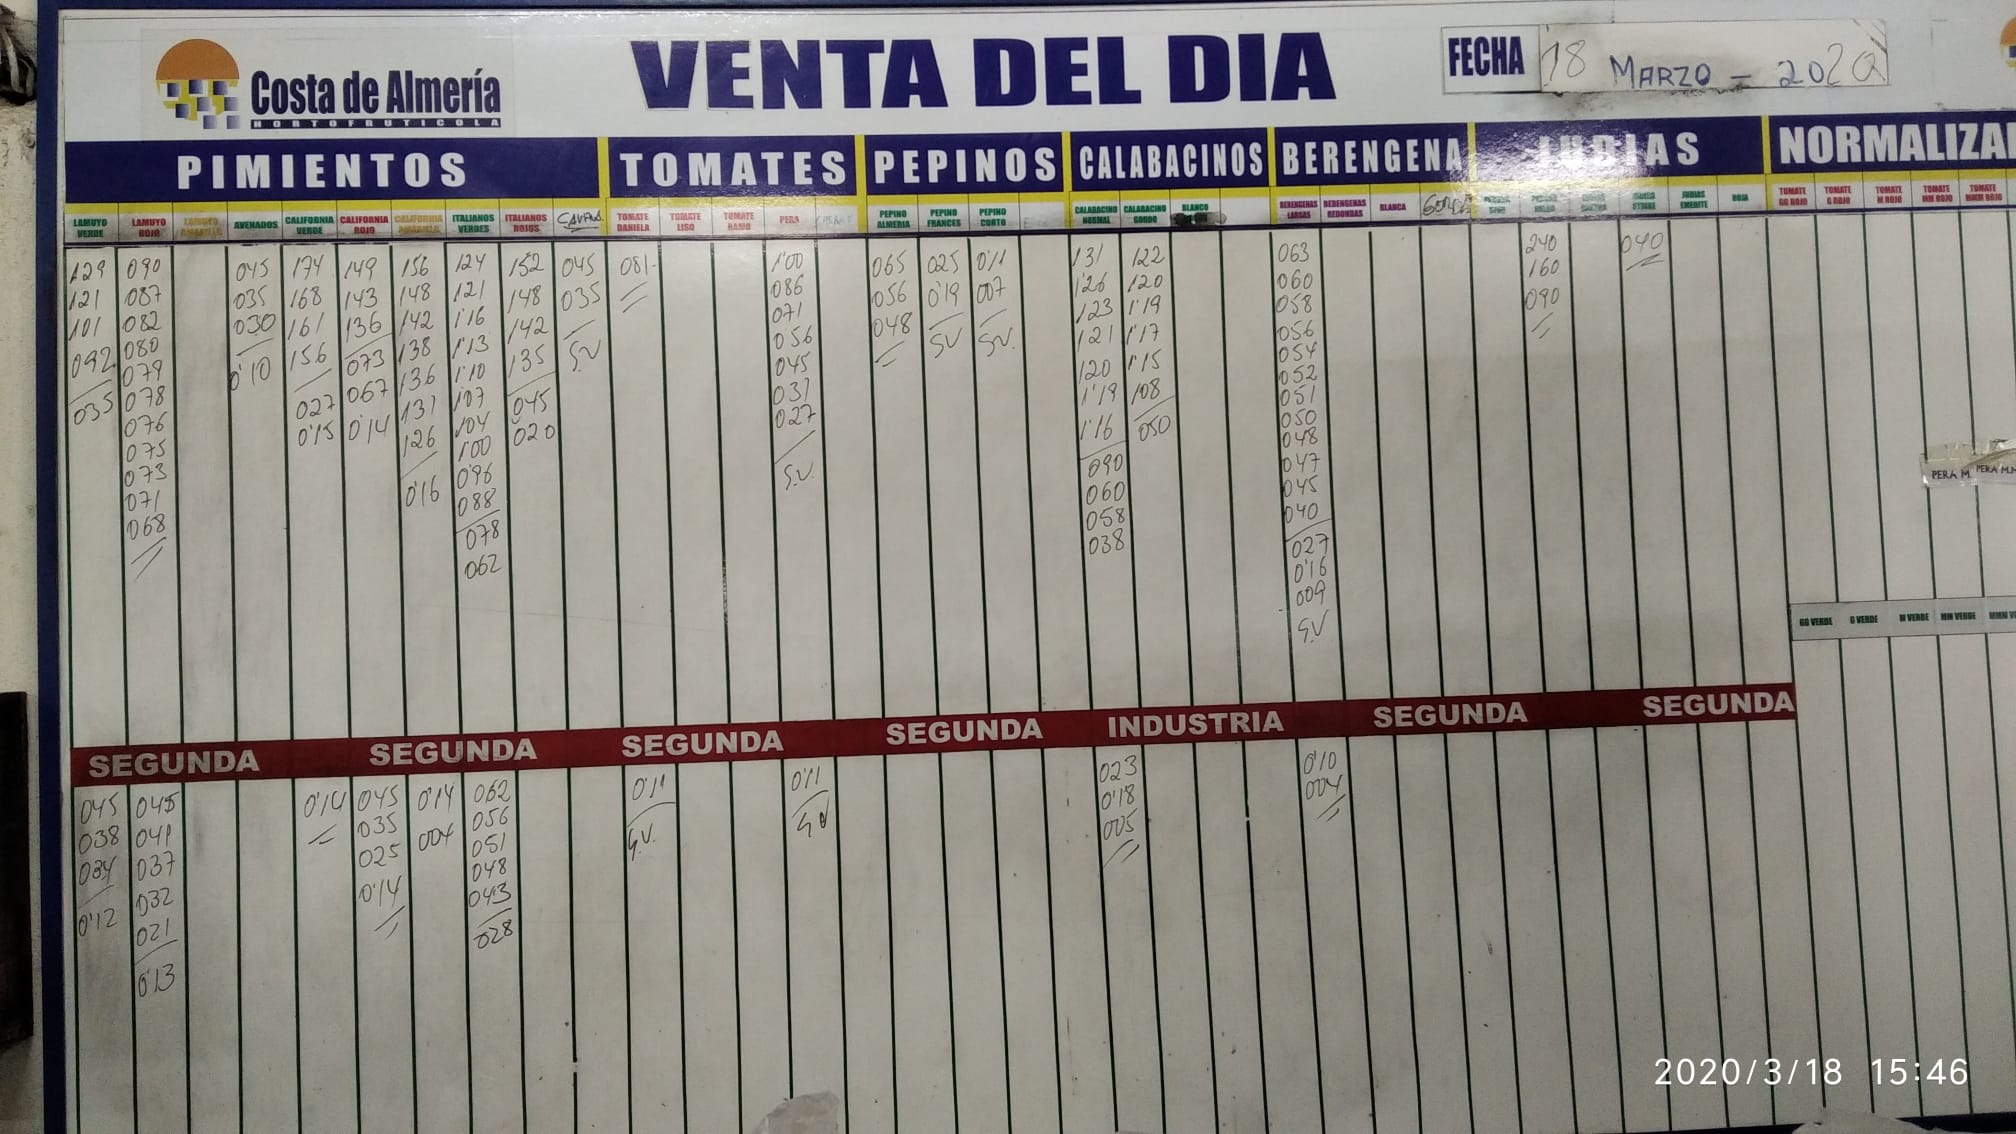 Costa de Almería
HORTOFRUTICOLA
VENTA DEL DIA
FECHA
18 MARZO - 2020
PIMIENTOS
TOMATES
PEPINOS
CALABACINOS
BERENGENA
JUDIAS
NORMALIZA
LAMUYO VERDE
LAMUYO ROJO
LAMUYO AMARILLO
AVENADOS
CALIFORNIA VERDE
CALIFORNIA ROJO
CALIFORNIA AMARILLO
ITALIANOS VERDES
ITALIANOS ROJOS
TOMATE DANIELA
TOMATE LISO
TOMATE RAMO
PERA
PEPINO ALMERIA
PEPINO FRANCES
PEPINO CORTO
CALABACINO NORMAL
CALABACINO GORDO
BLANCO
BERENGENAS LARGAS
BERENGENAS REDONDAS
BLANCA
GORDA
JUDIAS EMERITE
ROJA
TOMATE GG ROJO
TOMATE G ROJO
TOMATE M ROJO
TOMATE MM ROJO
TOMATE MMM ROJO
129
121
101
092
035
090
087
082
080
079
078
076
075
073
071
068
045
035
030
0'10
174
168
161
156
027
0'15
149
143
136
073
067
0'14
156
148
142
138
136
131
126
0'16
124
121
1'16
1'13
1'10
107
104
1'00
096
088
078
062
152
148
142
135
045
020
045
035
S.V
081
1'00
086
071
056
045
031
027
S.V.
065
056
048
025
0'19
SV
0'11
007
SV.
131
126
123
121
120
1'19
1'16
090
060
058
038
122
120
1'19
1'17
1'15
108
050
063
060
058
056
054
052
051
050
048
047
045
040
027
0'16
009
S.V
240
160
090
040
PERA M.
PERA M.M
GG VERDE
G VERDE
M VERDE
MM VERDE
SEGUNDA
SEGUNDA
SEGUNDA
SEGUNDA
INDUSTRIA
SEGUNDA
SEGUNDA
045
038
034
0'12
045
041
037
032
021
0'13
0'14
045
035
025
0'14
0'14
004
062
056
051
048
043
028
0'11
S.V.
0'11
S.V
023
0'18
005
0'10
004
2020/3/18 15:46